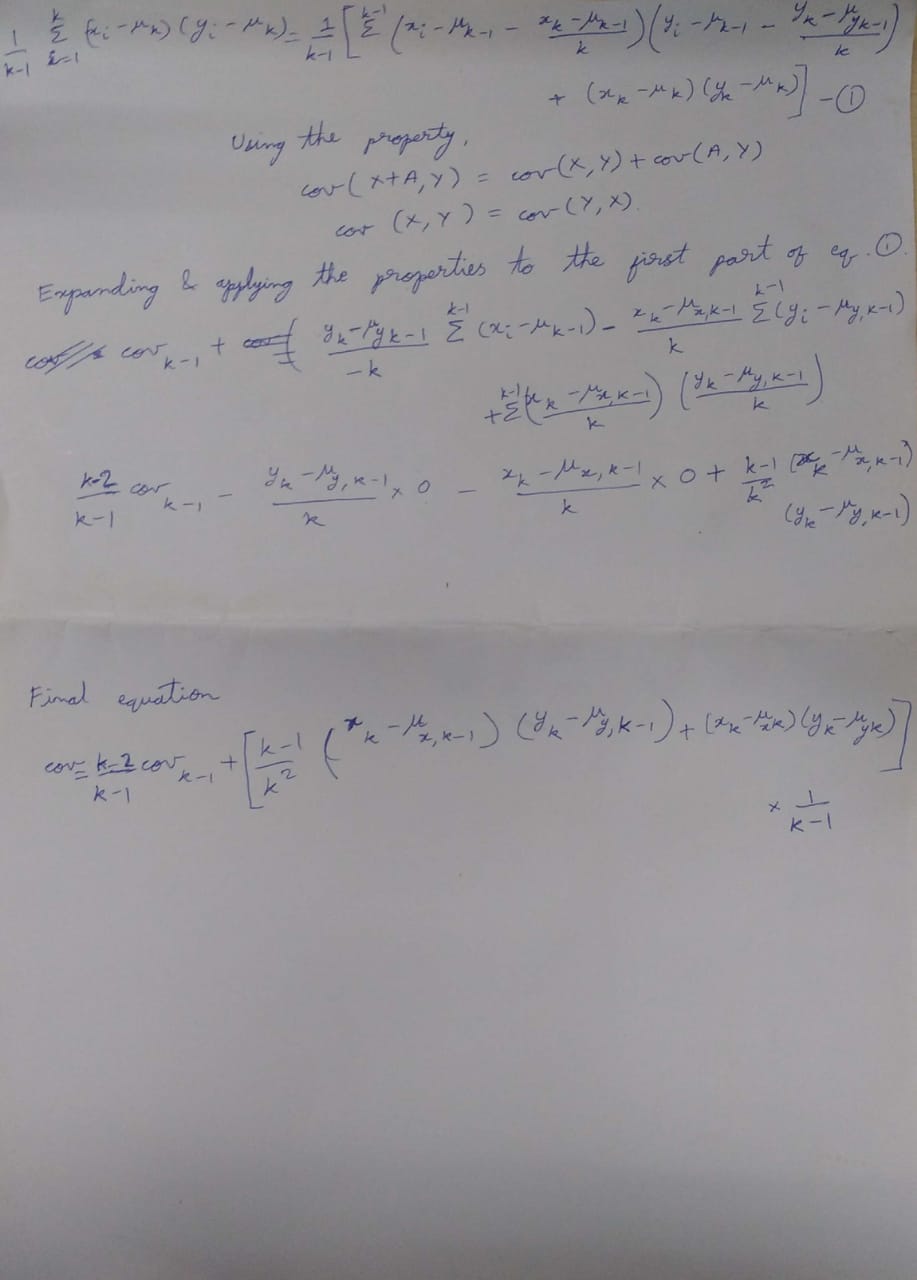 1/(k-1) Σ_{i=1}^{k} (x_i - μ_k)(y_i - μ_k) = 1/(k-1) [ Σ^{k-1} (x_i - μ_{k-1} - (x_k - μ_{k-1})/k) (y_i - μ_{k-1} - (y_k - μ_{yk-1})/k)
+ (x_k - μ_k)(y_k - μ_k) ] - ①
Using the property,
cov(X+A, Y) = cov(X, Y) + cov(A, Y)
cov (X, Y) = cov(Y, X).
Expanding & applying the properties to the first part of eq. ①.
cov_{k-1} + (y_k - μ_{yk-1})/-k Σ^{k-1} (x_i - μ_{k-1}) - (x_k - μ_{x,k-1})/k Σ^{k-1} (y_i - μ_{y,k-1})
+ Σ^{k-1} ((x_k - μ_{x,k-1})/k) ((y_k - μ_{y,k-1})/k)
(k-2)/(k-1) cov_{k-1} - (y_k - μ_{y,k-1})/k × 0 - (x_k - μ_{x,k-1})/k × 0 + (k-1)/k² (x_k - μ_{x,k-1})
(y_k - μ_{y,k-1})
Final equation
cov = (k-2)/(k-1) cov_{k-1} + [ (k-1)/k² (x_k - μ_{x,k-1}) (y_k - μ_{y,k-1}) + (x_k - μ_{xk})(y_k - μ_{yk}) ]
× 1/(k-1)